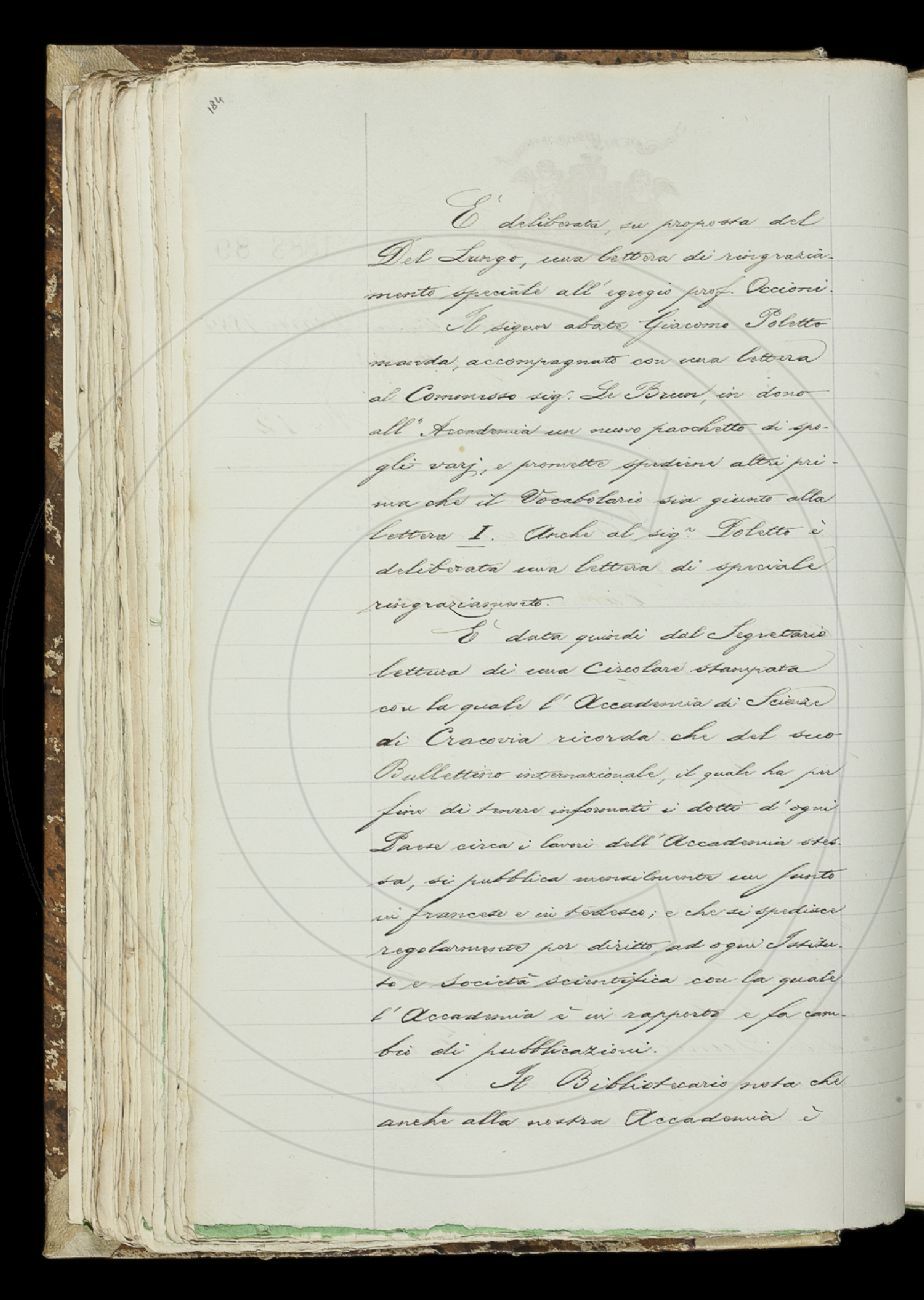 184
E' deliberata, su proposta del
Del Lungo, una lettera di ringrazia-
mento speciale all'egregio prof. Occioni.
Il signor abate Giacomo Poletto
manda, accompagnato con una lettera
al Commesso sig.r Le Brun, in dono
all'Accademia un nuovo pacchetto di spo-
gli varj, e promette spedirne altri pri-
ma che il Vocabolario sia giunto alla
lettera I. Anche al sig.r Poletto è
deliberata una lettera di speciale
ringraziamento.
E' data quindi dal Segretario
lettura di una Circolare stampata
con la quale l'Accademia di Scienze
di Cracovia ricorda che del suo
Bullettino internazionale, il quale ha per
fine di tenere informati i dotti d'ogni
Paese circa i lavori dell'Accademia stes-
sa, si pubblica mensilmente un sunto
in francese e in tedesco; e che si spedisce
regolarmente per diritto, ad ogni Istitu-
to e Società scientifica con la quale
l'Accademia è in rapporto e fa cam-
bio di pubblicazioni.
Il Bibliotecario nota che
anche alla nostra Accademia è